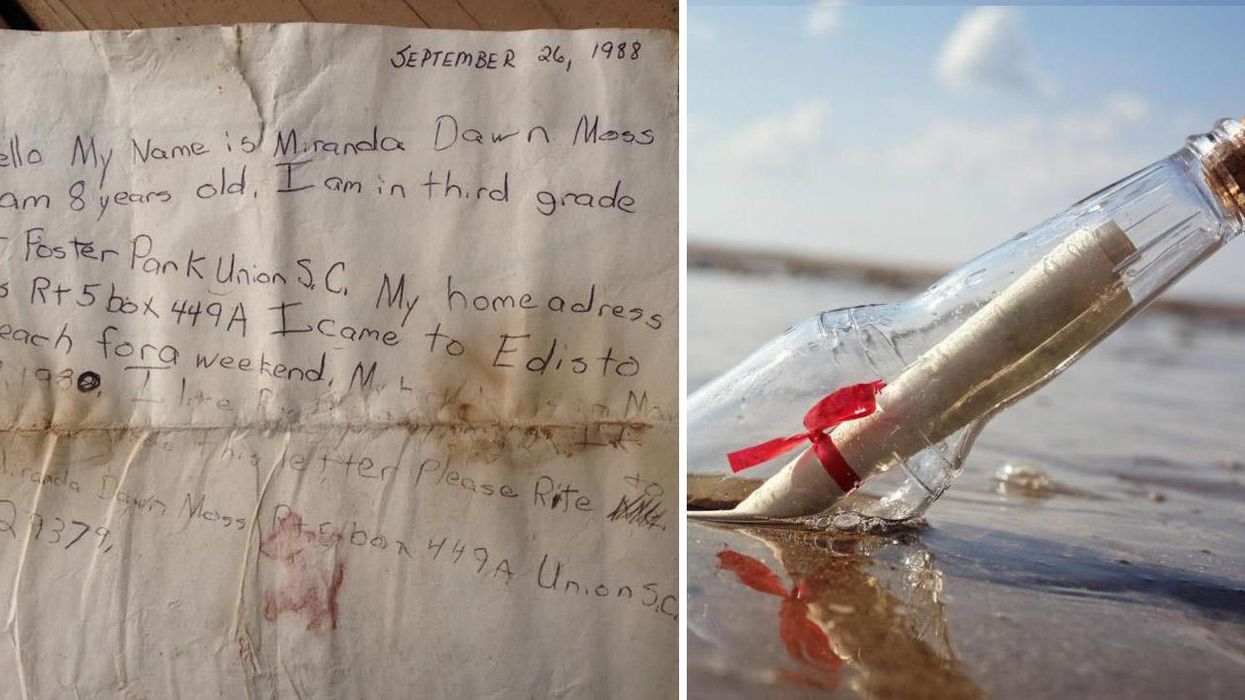 SEPTEMBER 26, 1988
ello My Name is Miranda Dawn Moss
am 8 years old. I am in third grade
Foster Park Union S.C. My home adress
s Rt 5 box 449A I came to Edisto
each for a weekend. M
198 . I like
this letter Please Rite to
iranda Dawn Moss Rt 5 box 449A Union S.C.
29379,